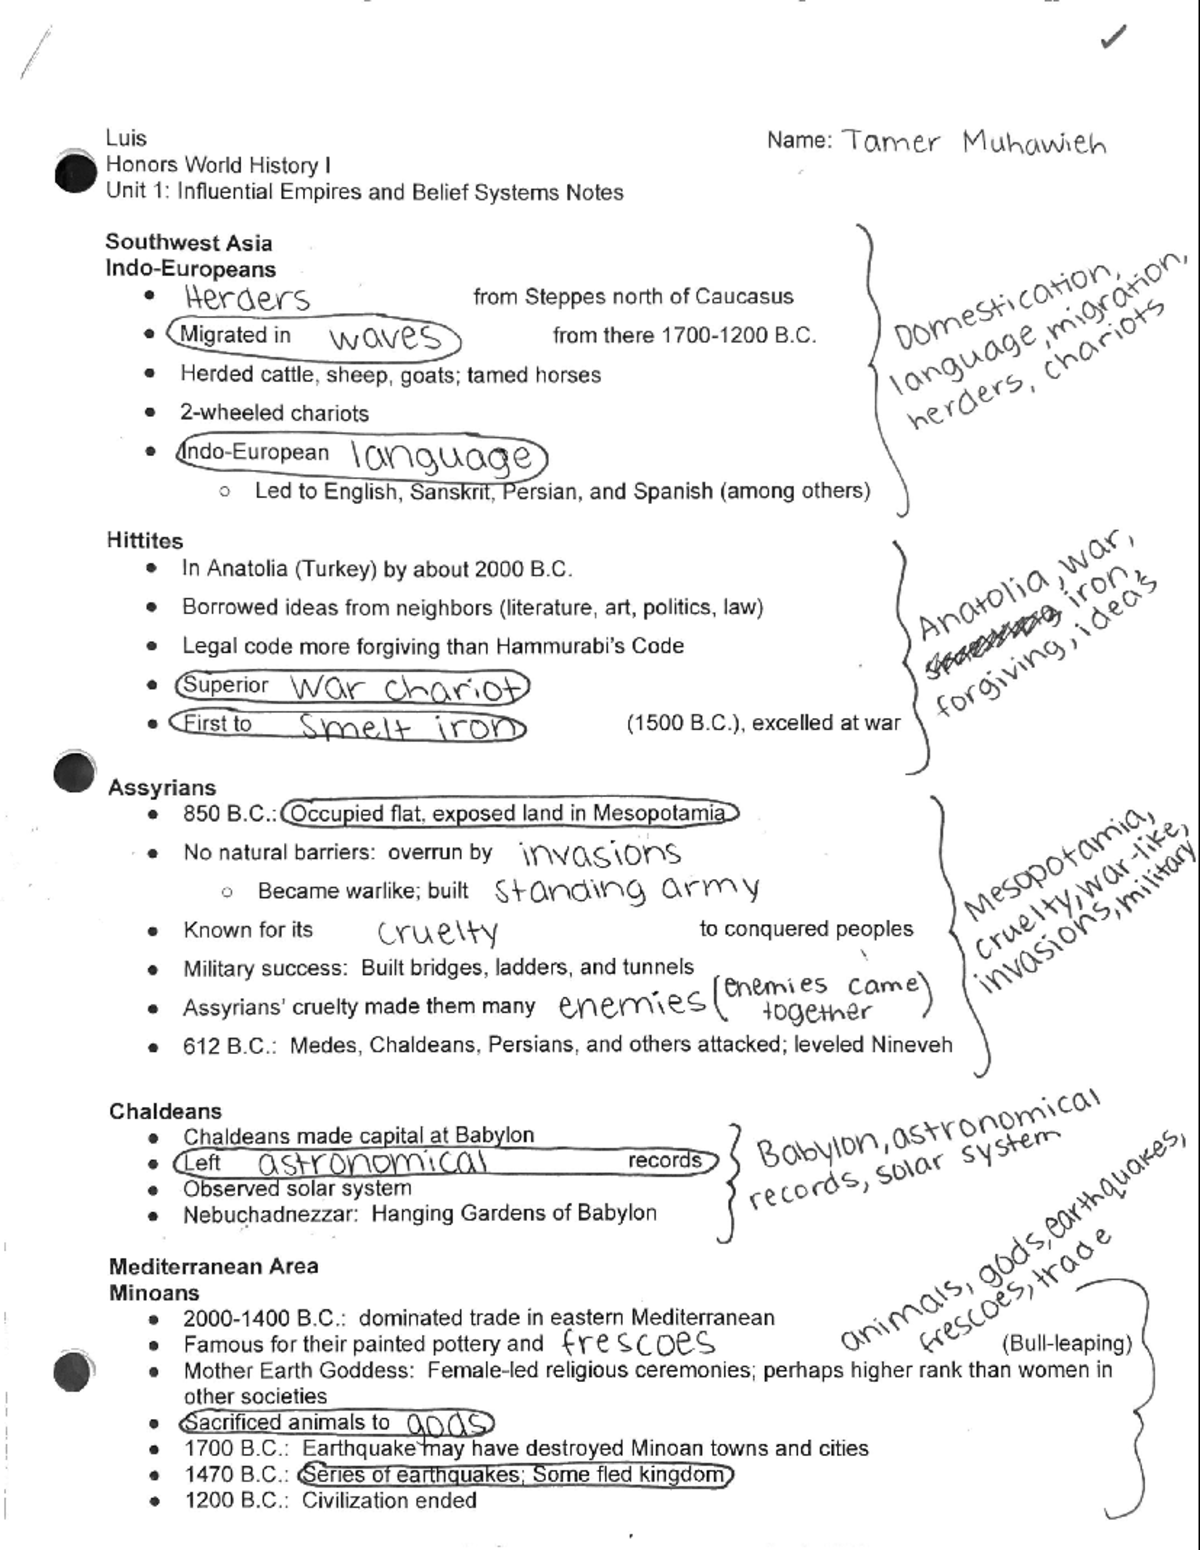 Luis
Name: Tamer Muhawieh
Honors World History I
Unit 1: Influential Empires and Belief Systems Notes
Southwest Asia
Indo-Europeans
• Herders from Steppes north of Caucasus
• Migrated in waves from there 1700-1200 B.C.
• Herded cattle, sheep, goats; tamed horses
• 2-wheeled chariots
• Indo-European language
○ Led to English, Sanskrit, Persian, and Spanish (among others)
Domestication,
language, migration,
herders, chariots
Hittites
• In Anatolia (Turkey) by about 2000 B.C.
• Borrowed ideas from neighbors (literature, art, politics, law)
• Legal code more forgiving than Hammurabi's Code
• Superior war chariot
• First to smelt iron (1500 B.C.), excelled at war
Anatolia, war,
iron,
forgiving, ideas
Assyrians
• 850 B.C.: Occupied flat, exposed land in Mesopotamia
• No natural barriers: overrun by invasions
○ Became warlike; built standing army
• Known for its cruelty to conquered peoples
• Military success: Built bridges, ladders, and tunnels
• Assyrians' cruelty made them many enemies (enemies came together)
• 612 B.C.: Medes, Chaldeans, Persians, and others attacked; leveled Nineveh
Mesopotamia,
cruelty, war-like,
invasions, military
Chaldeans
• Chaldeans made capital at Babylon
• Left astronomical records
• Observed solar system
• Nebuchadnezzar: Hanging Gardens of Babylon
Babylon, astronomical
records, solar system
Mediterranean Area
Minoans
• 2000-1400 B.C.: dominated trade in eastern Mediterranean
• Famous for their painted pottery and frescoes (Bull-leaping)
• Mother Earth Goddess: Female-led religious ceremonies; perhaps higher rank than women in
other societies
• Sacrificed animals to gods
• 1700 B.C.: Earthquake may have destroyed Minoan towns and cities
• 1470 B.C.: Series of earthquakes; Some fled kingdom
• 1200 B.C.: Civilization ended
animals, gods, earthquakes,
frescoes, trade